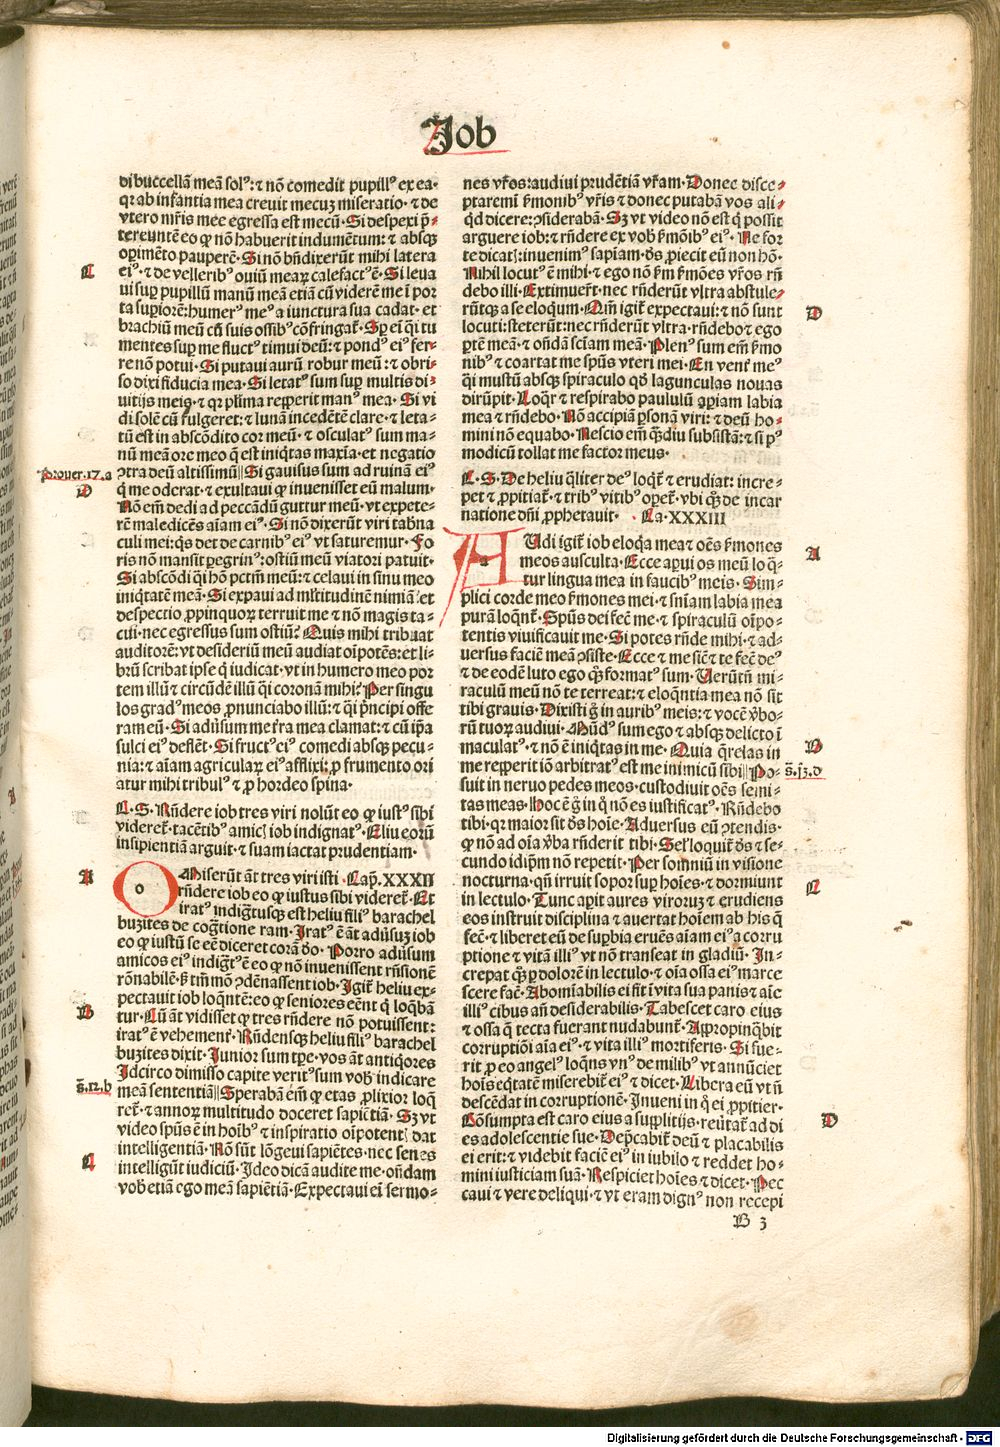 Job
di buccellā meā solꝰ: ⁊ nō comedit pupillꝰ ex ea·
qꝛ ab infantia mea creuit mecuꝫ miseratio· ⁊ de
vtero mr̄is mee egressa est mecū· Si despexi p̄-
tereuntē eo ꝙ nō habuerit indumētum: ⁊ absqꝫ
oꝑimēto pauperē· Si nō bn̄dixerūt mihi latera
eiꝰ· ⁊ de velleribꝰ ouiū meaꝝ calefactꝰ ē· Si leua
ui suꝑ pupillū manū meā etiā cū viderē me ī por
ta suꝑiorē: humerꝰ meꝰ a iunctura sua cadat· et
brachiū meū cū suis ossibꝰ cōfringat᷑· Sꝑ eī q̄i tu
mentes suꝑ me fluctꝰ timui deū: ⁊ pondꝰ eiꝰ fer-
re nō potui· Si putaui aurū robur meū: ⁊ obri-
so dixi fiducia mea· Si letatꝰ sum suꝑ multis di-
uitijs meis· ⁊ qꝛ pl̄ima repperit manꝰ mea· Si vi
di solē cū fulgeret: ⁊ lunā incedētē clare· ⁊ leta-
tū est in abscōdito cor meū· ⁊ osculatꝰ sum ma-
nū meā ore meo q̄ est iniq̄tas maxīa· et negatio
ꝯtra deū altissimū|| Si gauisus sum ad ruinā eiꝰ
q̄ me oderat· ⁊ exultaui ꝙ inuenisset eū malum·
Nō em̄ dedi ad peccādū guttur meū· vt expete-
rē maledicēs aīam eiꝰ· Si nō dixerūt viri tabna
culi mei: q̄s det de carnibꝰ eiꝰ vt saturemur· Fo
ris nō mansit ꝑegrinꝰ: ostiū meū viatori patuit·
Si abscōdi q̄i hō pctm̄ meū: ⁊ celaui in sinu meo
iniq̄tatē meā· Si expaui ad ml̄titudinē nimiā: et
despectio ꝓpinquoꝝ terruit me ⁊ nō magis ta-
cui· nec egressus sum ostiū? Quis mihi tribuat
auditorē: vt desideriū meū audiat oīpotēs: et li-
brū scribat ipse q̄ iudicat· vt in humero meo por
tem illū ⁊ circūdē illū q̄i coronā mihi? Per singu
los gradꝰ meos ꝓnunciabo illū: ⁊ q̄i pͥncipi offe
ram eū· Si adūsum me tr̄a mea clamat: ⁊ cū ip̄a
sulci eiꝰ deflēt· Si fructꝰ eiꝰ comedi absqꝫ pecu-
nia: ⁊ aīam agricolaꝝ eiꝰ afflixi: ꝓ frumento ori
atur mihi tribulꝰ ⁊ ꝓ hordeo spina·
C· S· Rn̄dere iob tres viri nolūt eo ꝙ iustꝰ sibi
videret᷑· tacētibꝰ amic̄ iob indignatꝰ· Eliu eorū
insipientiā arguit· ⁊ suam iactat prudentiam·
Omiserūt āt tres viri isti· Cap̄· XXXII
rn̄dere iob eo ꝙ iustus sibi videret᷑· Et
iratꝰ indigt̄usqꝫ est heliu filiꝰ barachel
buzites de coḡtione ram· Iratꝰ ē āt adūsuꝫ iob
eo ꝙ iustū se eē diceret corā dō· Porro adūsum
amicos eiꝰ indigt̄ꝰ ē eo ꝙ nō inuenissent rn̄sionē
rōnabilē· s̄ tm̄mō ꝯdēnassent iob· Igit᷑ heliu ex-
pectauit iob loqn̄tē: eo ꝙ seniores eēnt q̄ loq̄bā
tur· Cū āt vidisset ꝙ tres rn̄dere nō potuissent:
iratꝰ ē vehement᷑· Rn̄densqꝫ heliu filiꝰ barachel
buzites dixit· Junior sum tp̄e· vos āt antiq̄ores
Idcirco dimisso capite veritꝰ sum vob̄ indicare
meā sententiā|| Sperabā em̄ ꝙ etas ꝓlixior loq̄
ret᷑· ⁊ annoꝝ multitudo doceret sapiētiā· Sꝫ vt
video spūs ē in hoībꝰ ⁊ inspiratio oīpotent̄ dat
intelligentiā· Nō sūt lōgeui sapiētes· nec senes
intelligūt iudiciū· Ideo dicā audite me· on̄dam
vob̄ etiā ego meā sapiētiā· Expectaui eī sermo-
nes vr̄os: audiui prudētiā vr̄am· Donec disce-
ptaremi s̄monibꝰ vr̄is ⁊ donec putabā vos ali-
q̄d dicere: ꝯsiderabā· Sꝫ vt video nō est q̄ possit
arguere iob: ⁊ rn̄dere ex vob̄ s̄mōibꝰ eiꝰ· Ne for
te dicat̄: inuenimꝰ sapiam· dō̄s ꝓiecit eū non hō·
Nihil locutꝰ ē mihi· ⁊ ego nō s̄m s̄mōes vr̄os rn̄
debo illi· Extimuer̄t· nec rn̄derūt vltra abstule-
rūtqꝫ a se eloqum· Qm̄ igit᷑ expectaui: ⁊ nō sunt
locuti: steterūt: nec rn̄derūt vltra: rn̄debo ⁊ ego
ꝑtē meā· ⁊ on̄dā sciam meā· Plenꝰ sum em̄ s̄mo
nibꝰ ⁊ coartat me spūs vteri mei· En vent᷑ meꝰ
q̄i mustū absqꝫ spiraculo qd̄ lagunculas nouas
dirūpit· Loqr̄ ⁊ respirabo paululū aꝑiam labia
mea ⁊ rn̄debo· Nō accipiā ꝑsonā viri: ⁊ deū ho-
mini nō equabo· Nescio em̄ q̄ꝫdiu subsistā: ⁊ si pꝰ
modicū tollat me factor meus·
C· S· De heliu q̄liter deꝰ loqt᷑ ⁊ erudiat: incre-
pet ⁊ ꝓpitiat᷑· ⁊ tribꝰ vitibꝰ oꝑet᷑· vbi q̄ꝫ de incar
natione dn̄i ꝓphetauit· · Ca· XXXIII
AUdi igit᷑ iob eloqa mea ⁊ oēs s̄mones
meos ausculta· Ecce aꝑui os meū lo q̄-
tur lingua mea in faucibꝰ meis· Sim-
plici corde meo s̄mones mei· ⁊ sn̄iam labia mea
purā loqn̄t᷑· Spūs dei fec̄ me· ⁊ spiraculū oīpo-
tentis viuificauit me· Si potes rn̄de mihi· ⁊ ad-
versus faciē meā ꝯsiste· Ecce ⁊ me sic̄ ⁊ te fec̄ deꝰ
⁊ de eodē luto ego q̄ꝫ formatꝰ sum· Verūtn̄ mi-
raculū meū nō te terreat: ⁊ eloqn̄tia mea nō sit
tibi grauis· Dixisti g̊ in auribꝰ meis: ⁊ vocē v̄bo-
rū tuoꝝ audiui· Mūdꝰ sum ego ⁊ absqꝫ delicto ī
maculatꝰ· ⁊ nō ē iniq̄tas in me· Quia q̄relas in
me repperit iō arbitratꝰ est me inimicū sibi|| Po-
suit in neruo pedes meos· custodiuit oēs semi-
tas meas· hoc ē g̊ in q̄ nō es iustificatꝰ· Rn̄debo
tibi· qꝛ maior sit dō̄s hoīe· Adversus eū ꝯtendis·
ꝙ nō ad oīa v̄ba rn̄derit tibi· Sel̄ loquit᷑ dō̄s ⁊ se-
cundo idip̄m nō repetit· Per somniū in visione
nocturna· qn̄ irruit sopor suꝑ hoīes· ⁊ dormiunt
in lectulo· Tunc aꝑit aures viroꝝ: ⁊ erudiens
eos instruit disciplina ⁊ auertat hoīem ab his q̄
fec̄· ⁊ liberet eū de suꝑbia eruēs aīam eiꝰ a corru
ptione ⁊ vitā illiꝰ vt nō transeat in gladiū· In-
crepat q̄ꝫ ꝑ dolorē in lectulo· ⁊ oīa ossa eiꝰ marce
scere fac̄· Abomīabilis ei fit ī vita sua panis ⁊ aīe
illiꝰ cibus an̄ desiderabilis· Tabescet caro eius
⁊ ossa q̄ tecta fuerant nudabunt᷑· Appropinq̄bit
corruptiōi aīa eiꝰ· ⁊ vita illiꝰ mortiferis· Si fue-
rit ꝓ eo angelꝰ loqn̄s vnꝰ de milibꝰ vt annūciet
hoīs eq̄tatē miserebit᷑ eiꝰ ⁊ dicet· Libera eū vt n̄
descēdat in corruptionē· Inueni in q̄ ei ꝓpitier·
Cōsumpta est caro eius a suppl̄itijs· reūtat᷑ ad di
es adolescentie sue· Dep̄cabit᷑ deū ⁊ placabilis
ei erit: ⁊ videbit faciē eiꝰ in iubilo ⁊ reddet ho-
mini iusticiam suā· Respiciet hoīes ⁊ dicet· Pec
caui ⁊ vere deliqui· ⁊ vt eram dignꝰ non recepi
B 3
C
Prouer. 17. a
D
A
B
s̄. 12. b
C
D
A
B
s̄. 13. d
C
D
Digitalisierung gefördert durch die Deutsche Forschungsgemeinschaft - DFG